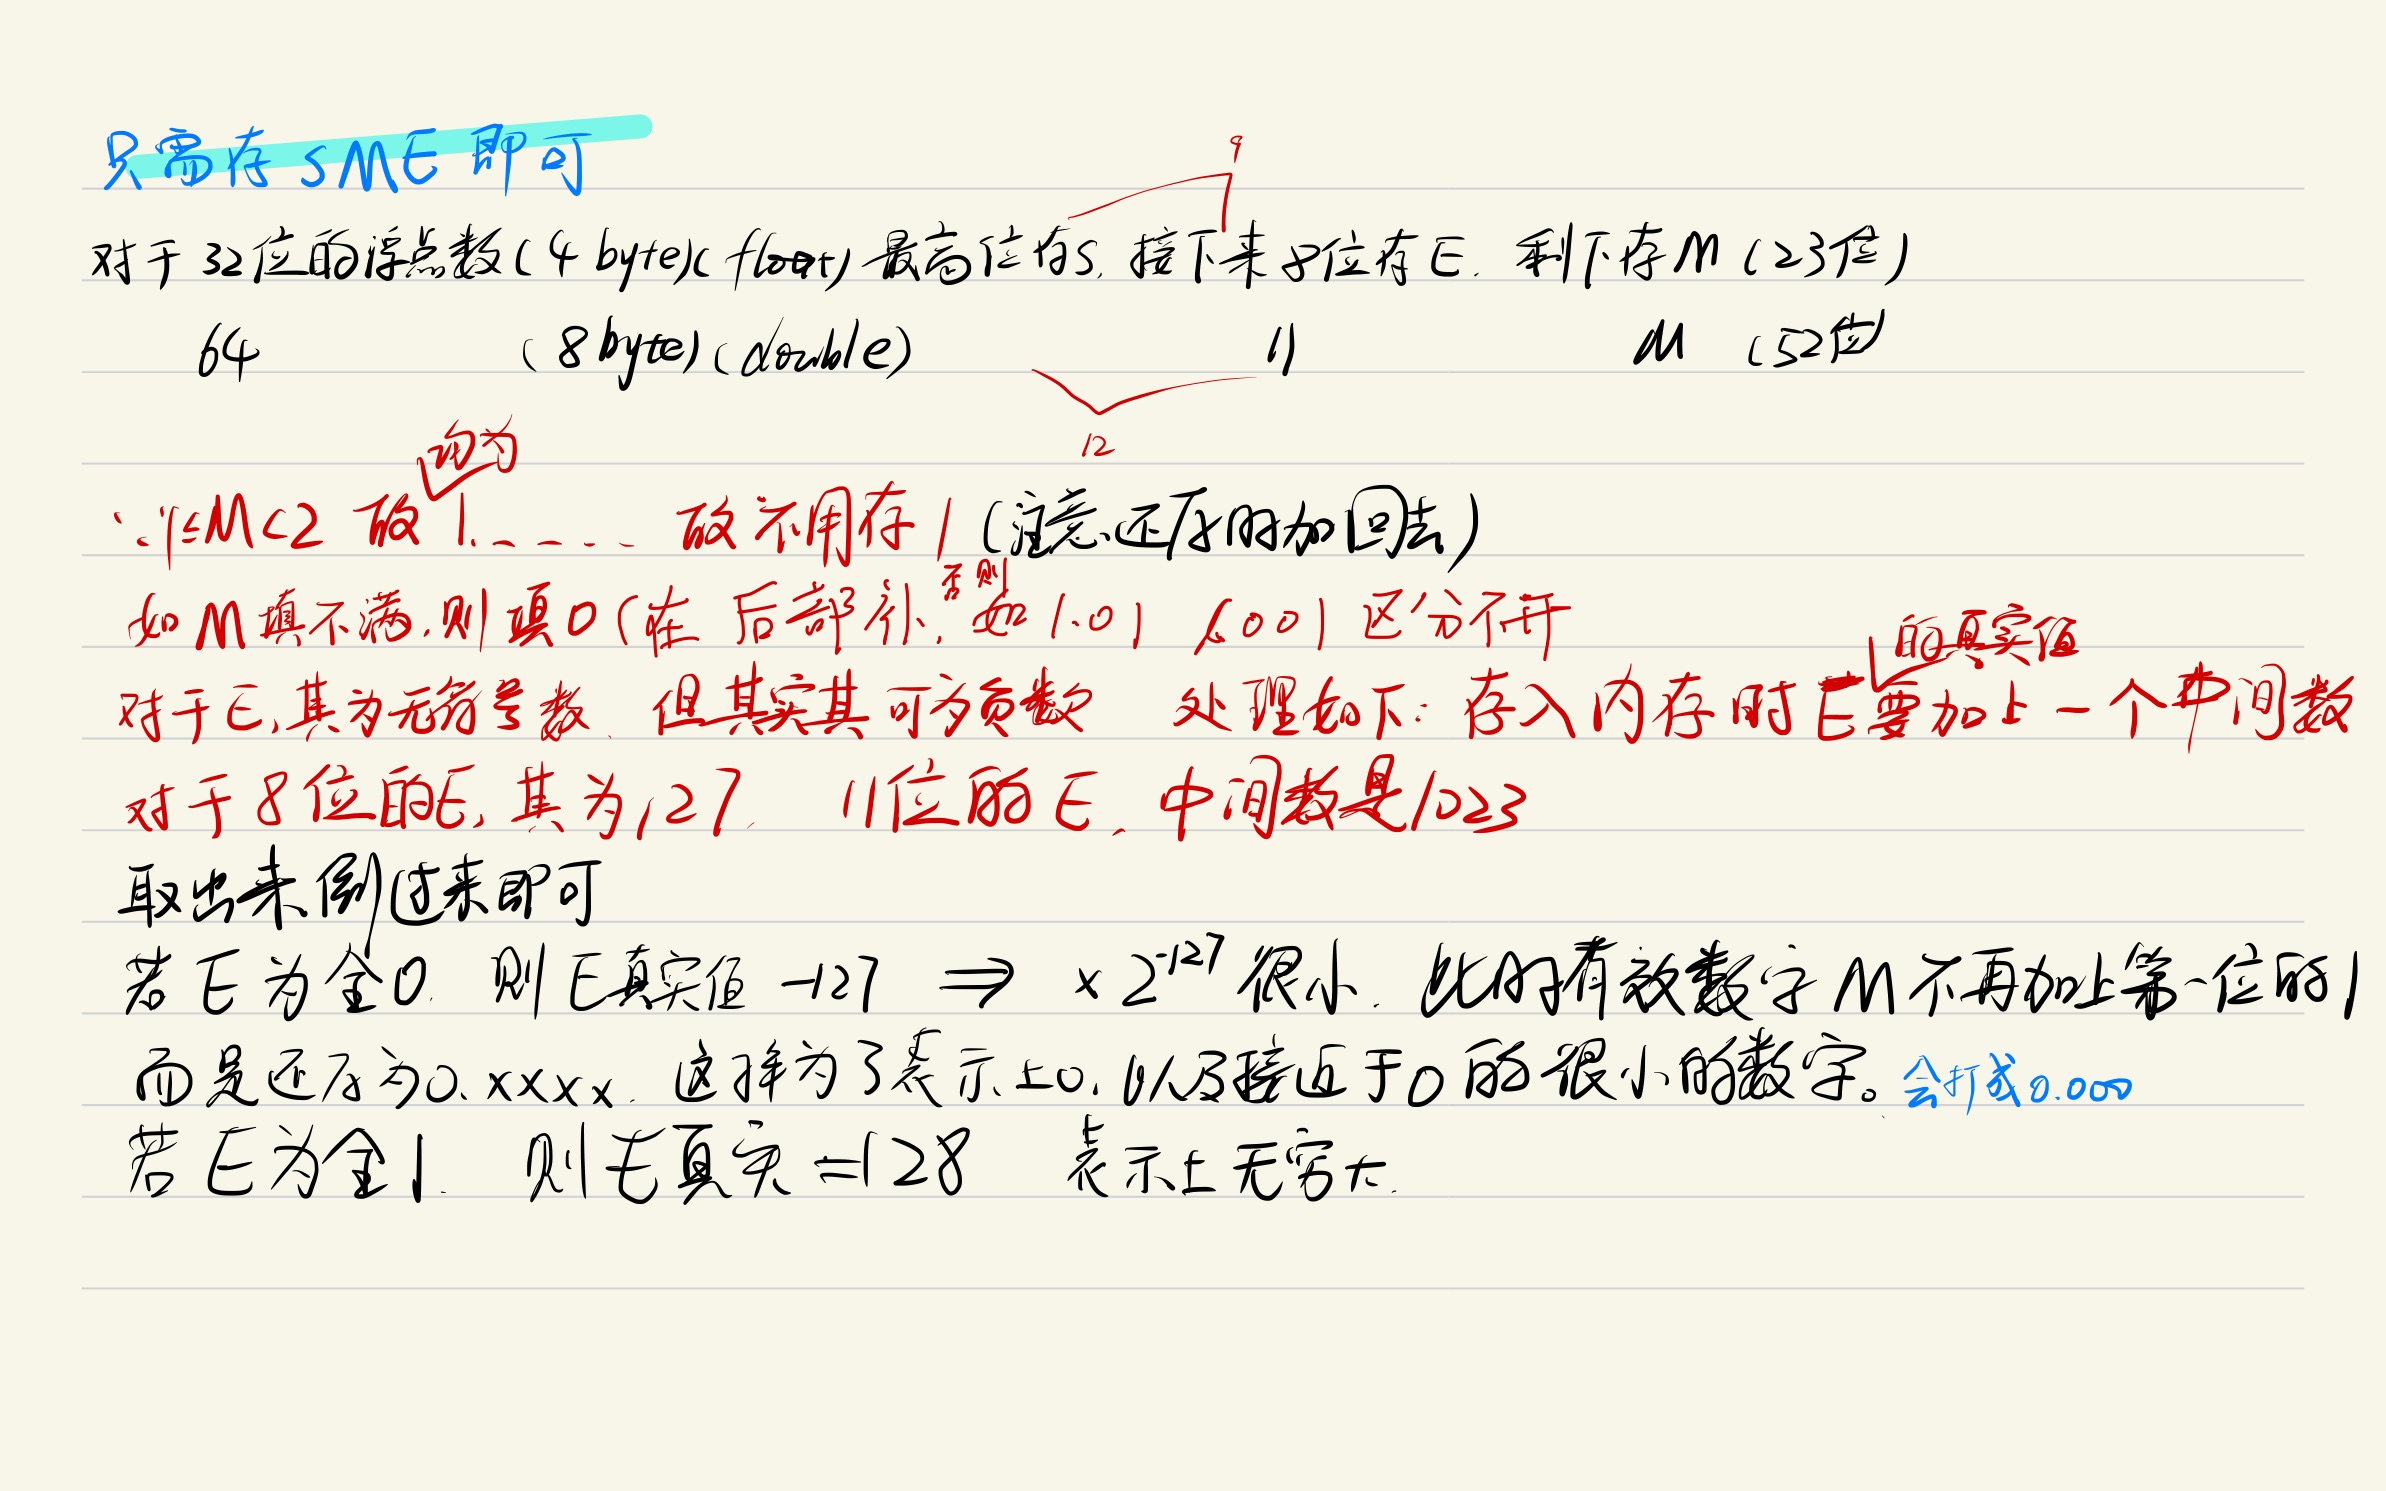 只需存SME即可
9
对于32位的浮点数(4 byte)(float)最高位存S.接下来8位存E.剩下存M(23位)
64 (8 byte)(double) 11 M (52位)
12
均为
∵1≤M<2 故1.---- 故不用存1(注意还原时加回去)
如M填不满,则填0(在后部补,否则如1.01 1.001区分不开
的真实值
对于E,其为无符号数.但其实其可为负数 处理如下:存入内存时E要加上一个中间数
对于8位的E,其为127. 11位的E.中间数是1023
取出来倒过来即可
若E为全0.则E真实值-127 ⇒ ×2⁻¹²⁷很小.此时有效数字M不再加上第一位的1
而是还原为0.xxxx.这样为了表示±0,以及接近于0的很小的数字。会打成0.000
若E为全1.则E真实=128 表示±无穷大.